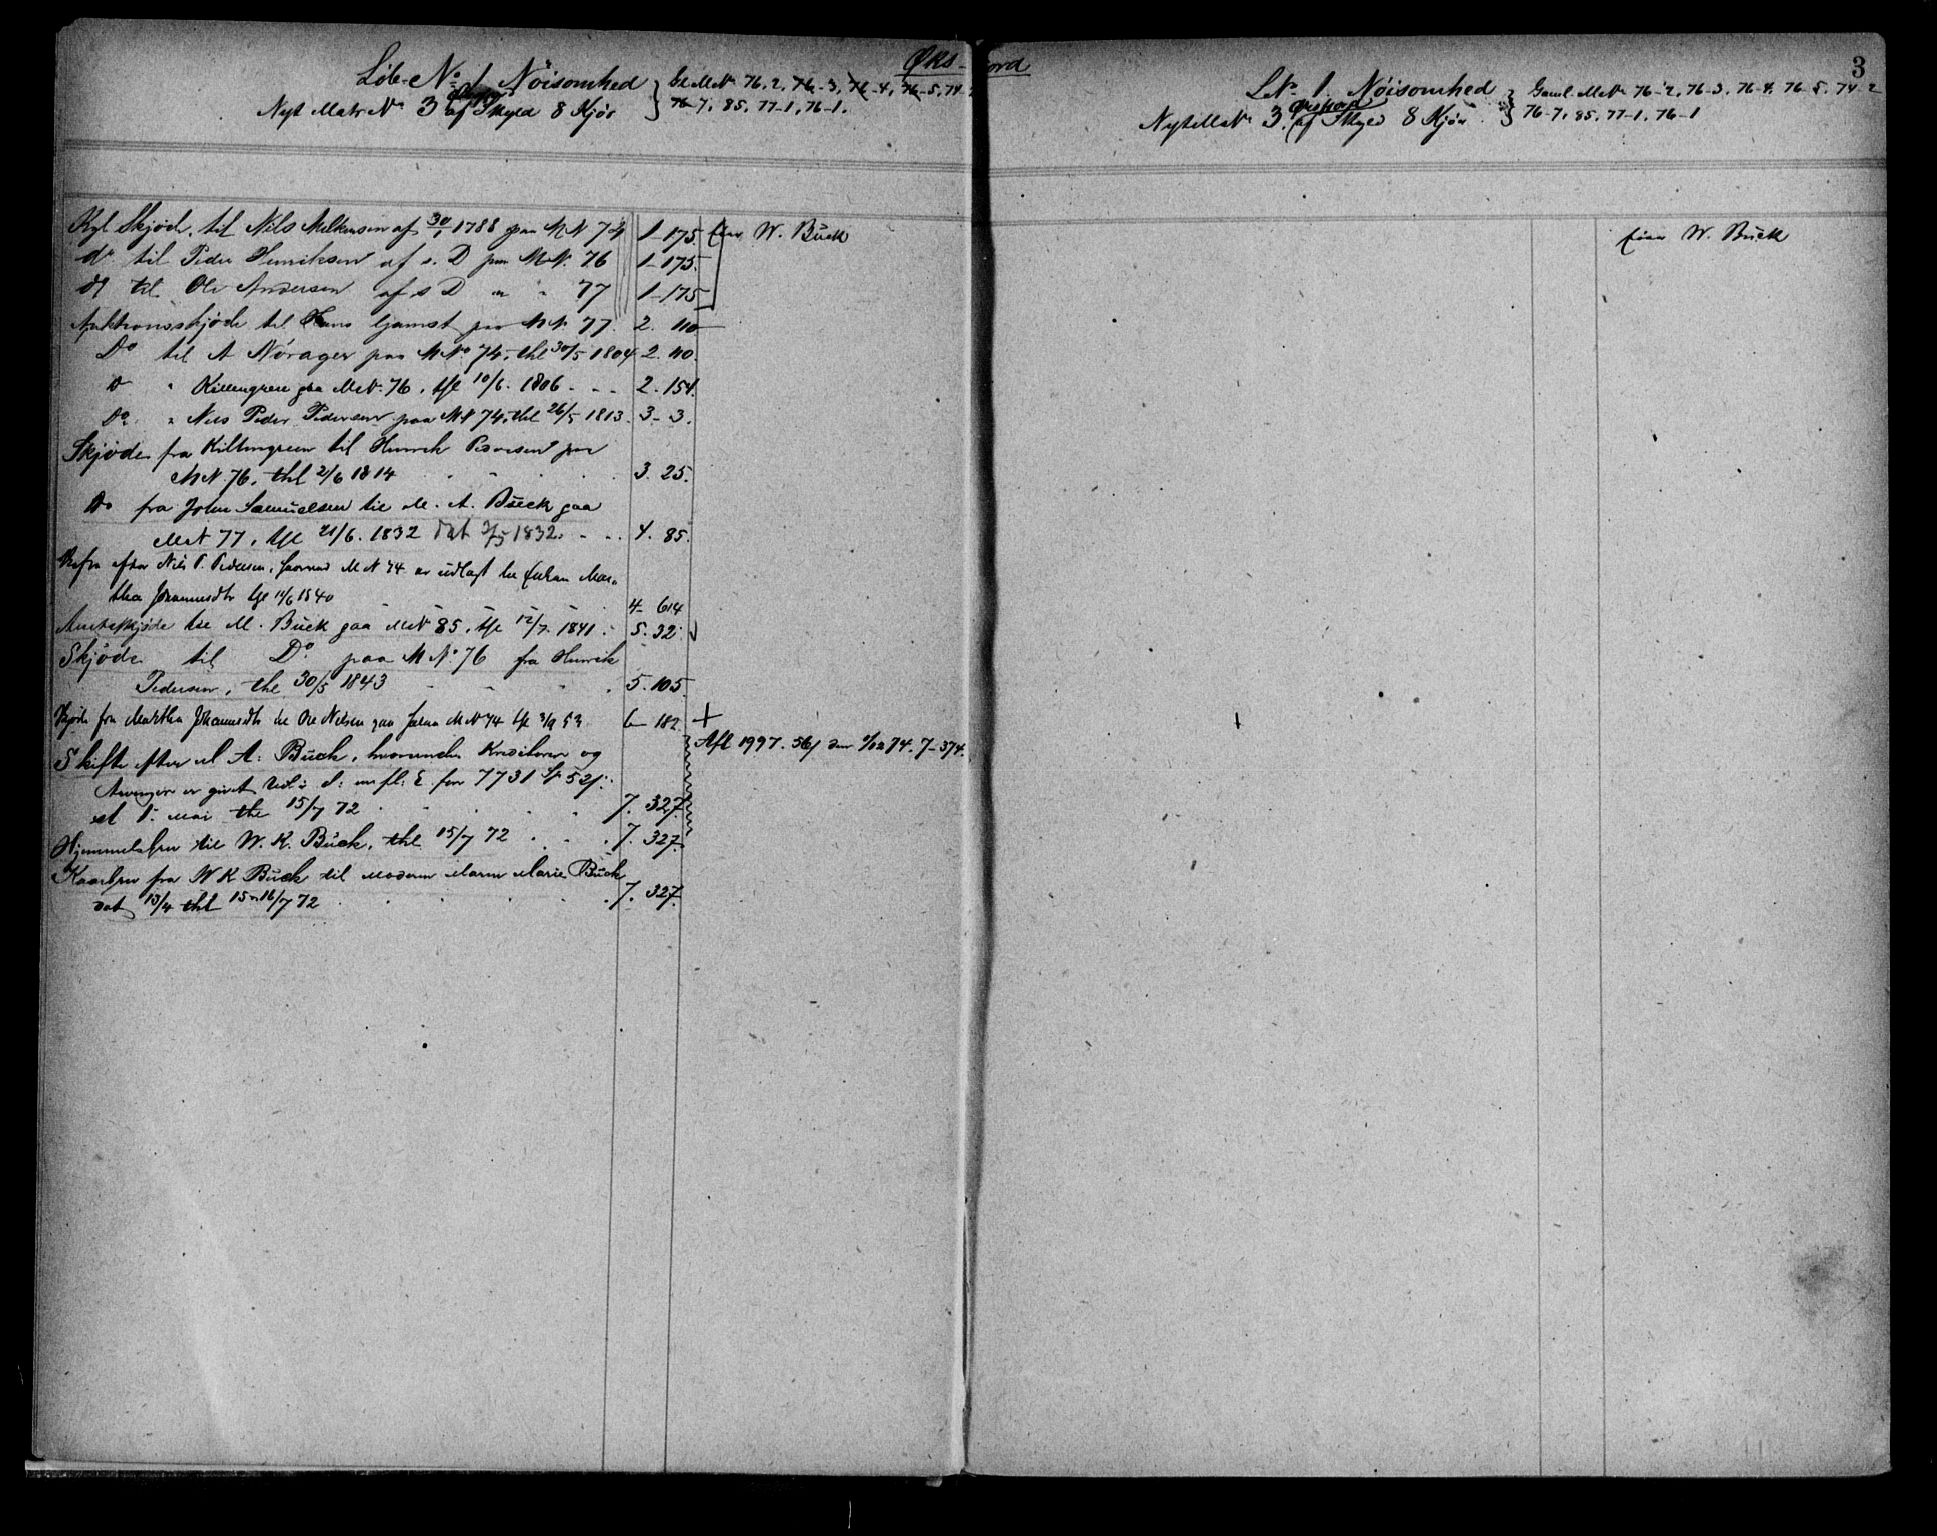 Øks-fjord
Löb-No 1 Nöisomhed } Gl. M No 76,2, 76-3, 76-4, 76-5, 74-2
Nyt Matr No 3 af Skyld 8 Kjör } 76-7, 85, 77-1, 76-1.
Kgl Skjöde til Nils Mikkelsen af 30/1 1788 paa M N 74 1-175. Eier W. Buck
do til Peder Henriksen af s. D paa M N. 76 1-175.
do til Ole Andersen af s D " " 77 1-175
Auktionsskjöde til Hans Gamst paa M N. 77. 2. 110
Do til A Nörager paa M No 74, thl 30/5 1804 2. 110.
Do " Killengreen paa M N. 76, thl 10/6. 1806 - - - 2. 154.
Do. " Nils Peder Pedersen paa M N 74, thl 26/5 1813. 3-3.
Skjöde fra Killengreen til Henrik Pedersen paa
M N. 76, thl 2/6 1814 3. 25.
Do fra John Samuelsen til M. A. Buck paa
M N 77, thl 21/6. 1832 dat 3/5 1832. - . . 4. 85.
efter Nils P. Pedersen, hvorved M N 74 er udlagt til Enken Mar-
tha Johannesdtr thl 11/6 1840 4- 614
til M. Buck paa M N 85, thl 12/7. 1841. 5. 32.
Skjöde til Do. paa M No. 76 fra Henrik
Pedersen, thl 30/5 1843 5. 105.
Skjöde fra Martha Johannesdtr til Ole Nilsen paa M N 74 thl 3/9 53 6- 182 +
Skifte efter M A. Buck, hvorunder Kreditorer og Afl 1997. 56 74. 7-374.
Arvinger er givet Udl. i for 7731 Sp 52
7. 327.
Hjemmelsbrev til W. K. Buck, thl 15/7 72 . . . 7. 327.
Kaarbrev fra W K Buck til Moderen Maren Marie Buck
dat 13/4 thl 15-16/7 72 7. 327.
3
L No 1. Nöisomhed } Gaml. M No 76-2, 76-3, 76-4, 76-5, 74-2
Nyt M No 3. af Skyld 8 Kjör } 76-7, 85, 77-1, 76-1
Eier W. Buck